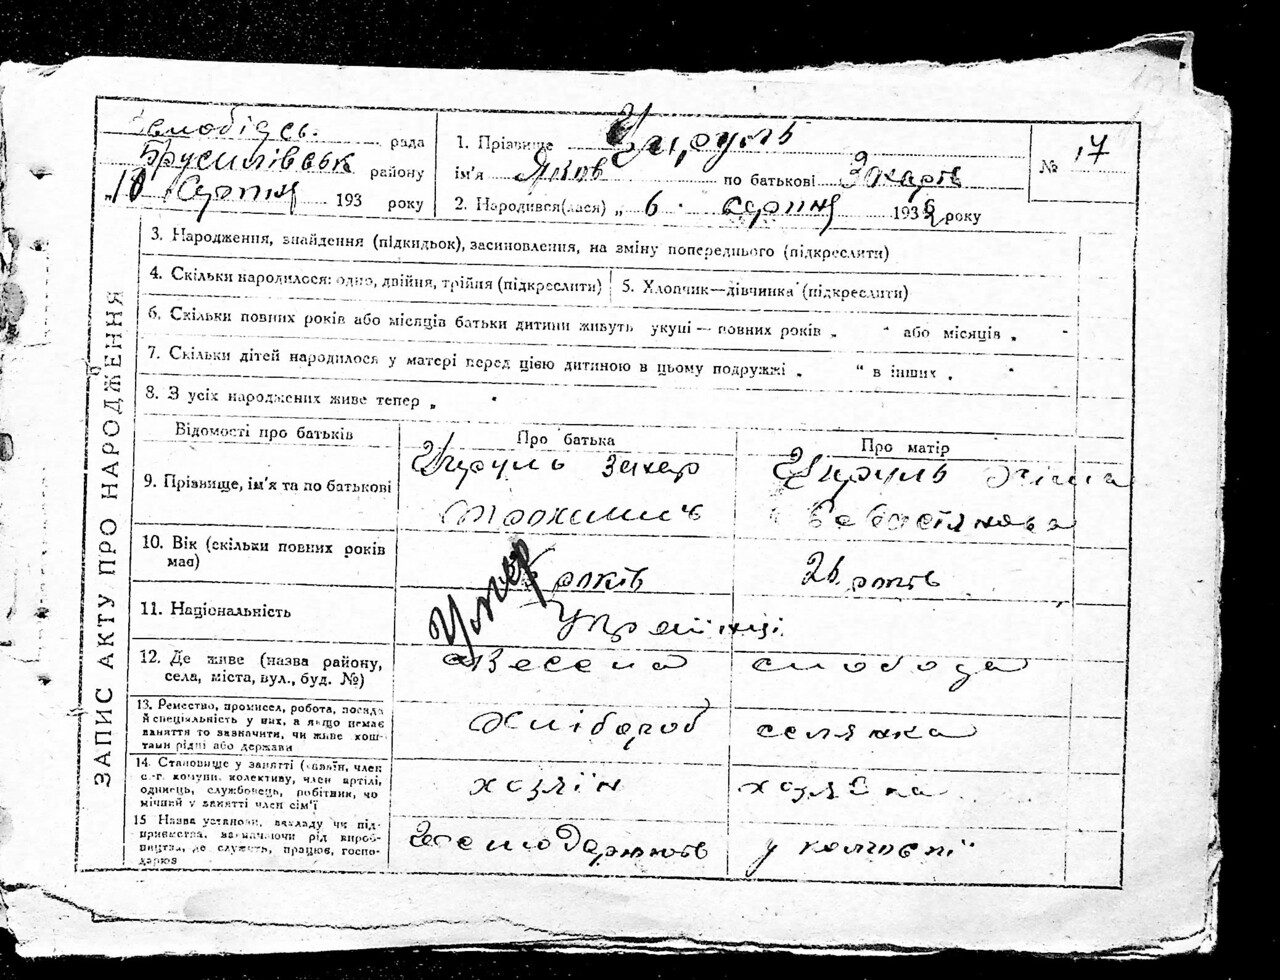 рада
Брусилівськ району
"10 Серпня 193 року
1. Прізвище Цируль
ім'я Яків по батькові Захарів
2. Народився(лася) „ 6 серпня 1932 року
№ 17
ЗАПИС АКТУ ПРО НАРОДЖЕННЯ
3. Народження, знайдення (підкидьок), засиновлення, на зміну попереднього (підкреслити)
4. Скільки народилося: одно, двійня, трійня (підкреслити)
5. Хлопчик—дівчинка (підкреслити)
6. Скільки повних років або місяців батьки дитини живуть укупі — повних років „ " або місяців „ "
7. Скільки дітей народилося у матері перед цією дитиною в цьому подружжі „ " в інших „ "
8. З усіх народжених живе тепер „ "
Відомості про батьків
Про батька
Про матір
9. Прізвище, ім'я та по батькові
Цируль Захар
Цируль
10. Вік (скільки повних років має)
років
26 років
Умер
11. Національність
Українці
12. Де живе (назва району, села, міста, вул., буд. №)
Весела слобода
13. Ремество, промисел, робота, посада й спеціяльність у них, а якщо немає заняття то зазначити, чи живе коштами рідні або держави
Хлібороб
селянка
14. Становище у занятті (хазяїн, член с.-г. комуни, колективу, член артілі, одинець, службовець, робітник, чи помічний у занятті член сім'ї
хозяїн
хозяйка
15 Назва установи, закладу чи підприємства, зазначаючи рід виробництва, де служить, працює, господарює
у колгоспі